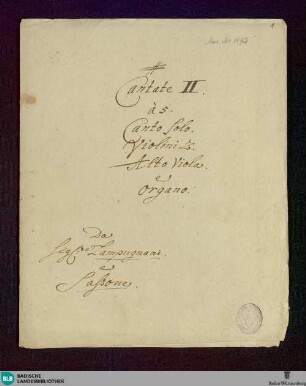 Cantate II.
à 5.
Canto Solo.
Violini 2.
Alto Viola
e
Organo.
Da
Sig.re Lampugnani
e
Saßone.
BLB
BADISCHE
LANDESBIBLIOTHEK